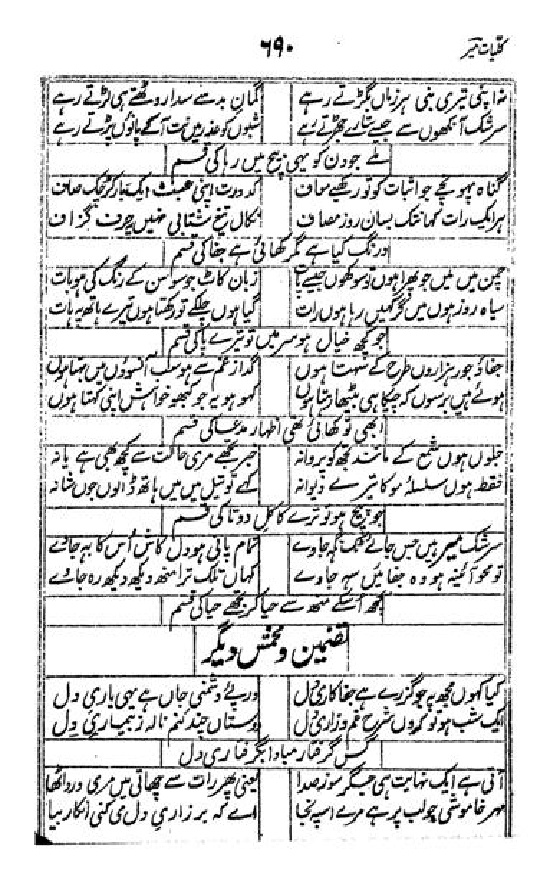 کلیات میر
۶۹۰
نہ اپنی تیری بنی ہر زماں بگڑتے رہے
گمان بد سے سدا روٹھتے ہی لڑتے رہے
سرشک آنکھوں سے جیسے ستارے جھڑتے رہے
شبوں کو عذر میں نت آگے پانوں پڑتے رہے
ملے جو دن کو یہی پیچ میں رہا کی قسم
گناہ پہونچے جو اثبات کو تو رکھیے معاف
کدورت اپنی عبث ایک بار کر چک صاف
ہر ایک رات کہاں تک بسان روز مصاف
نکال تیغ شتابی نہیں چرف گزاف
درنگ کیا ہے مگر کھائی ہے جفا کی قسم
چمن میں میں جو پھرا ہوں تو سوکھوں جیسے پات
زبان کاٹ جو سوسن کے رنگ کی ہو بات
سیاہ روز ہوں میں فکر کہیں رہا ہوں رات
گیا ہوں بھکے تو رکھتا ہوں تیرے ہاتھ پہ ہات
جو کچھ خیال ہو سر میں تو تیرے پا کی قسم
جفا و جور ہزاروں طرح کے سہتا ہوں
گداز غم سے ہو سب آنسوؤں میں بہتا ہوں
ہوئے ہیں برسوں کہ چپکا ہی بیٹھا رہتا ہوں
کہو ہو یہ جو کبھو خواہش اپنی کہتا ہوں
ابھی تو کھائی تھی اظہار مدعا کی قسم
جلوں ہوں شمع کے مانند کچھ کو پروانہ
خبر تجھے مری حالت سے کچھ بھی ہے یا نہ
فقط ہوں سلسلہ مو کا تیرے دیوانہ
کہے تو تیل میں میں ہاتھ ڈالوں جوں شانہ
جو پیچ ہو تیرے کاکل دوتا کی قسم
سرشک میر ہیں جس جائے
تمام پانی ہو دل کاش اس کا بہہ جائے
تو محو آئینہ ہو وہ جفائیں سہہ جاوے
کہاں تلک ترا منھ دیکھ دیکھ رہ جائے
کچھ اسکے منھ سے حیا کر تجھے حیا کی قسم
تضمین و مخمس دیگر
کیا کہوں مجھ پہ جو گزرے ہے جفا کاری دل
درپئے دشمنی جاں ہے یہی یاری دل
ایک شب ہو تو کروں شرح غم و زاری دل
دوستاں چند کنم نالہ ز بیماری دل
کس گرفتار مبادا بگرفتاری دل
آتی ہے ایک نہایت ہی جگر سوز صدا
یعنی پھر رات سے چھاتی میں مری درد اٹھا
مہر خاموشی جو لب پر ہے مرے اسپہ نجا
اے کہ بر زاری دل می کنی انکار بیا